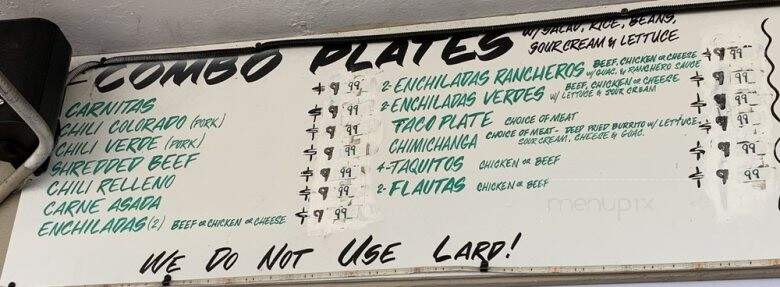 COMBO PLATES W/ SALAD, RICE, BEANS,
SOUR CREAM & LETTUCE
CARNITAS $9.99
CHILI COLORADO (PORK) $9.99
CHILI VERDE (PORK) $9.99
SHREDDED BEEF $9.99
CHILI RELLENO $9.99
CARNE ASADA $9.99
ENCHILADAS (2) BEEF OR CHICKEN OR CHEESE $9.99
2-ENCHILADAS RANCHEROS BEEF, CHICKEN OR CHEESE W/ GUAC. & RANCHERO SAUCE $9.99
2-ENCHILADAS VERDES BEEF, CHICKEN OR CHEESE W/ LETTUCE & SOUR CREAM $9.99
TACO PLATE CHOICE OF MEAT $9.99
CHIMICHANGA CHOICE OF MEAT - DEEP FRIED BURRITO W/ LETTUCE- SOUR CREAM, CHEESE & GUAC. $9.99
4-TAQUITOS CHICKEN OR BEEF $9.99
2-FLAUTAS CHICKEN OR BEEF $9.99
WE DO NOT USE LARD!
menupix